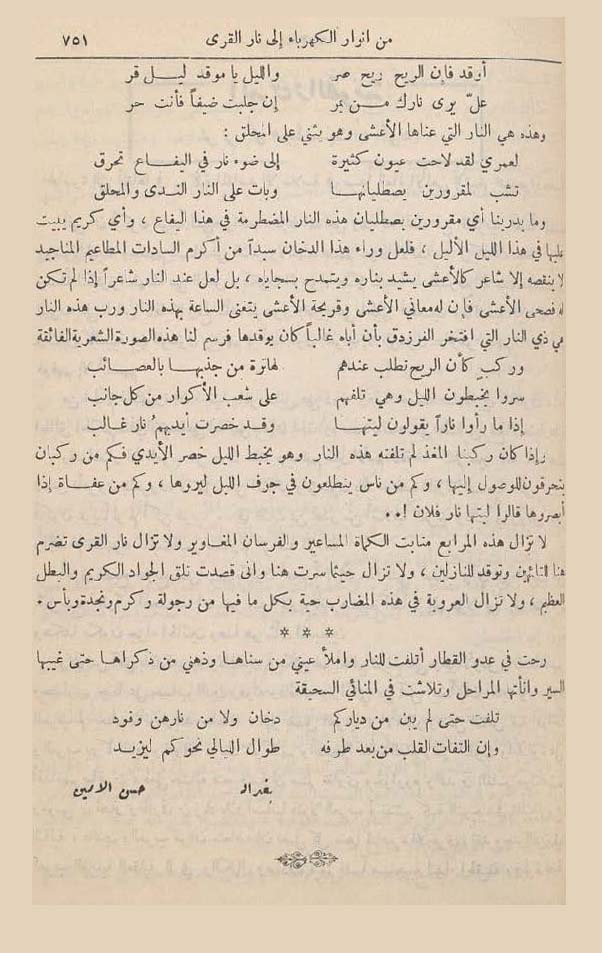 من انوار الكهرباء إلى نار القرى ٧٥١
أوقد فإن الريح ريح صر والليل يا موقد ليل قر
علّ يرى نارك من يمر إن جلبت ضيفاً فأنت حر
وهذه هي النار التي عناها الأعشى وهو يثني على المحلق :
لعمري لقد لاحت عيون كثيرة إلى ضوء نار في اليفاع تحرق
تشب لمقرورين يصطليانها وبات على النار الندى والمحلق
وما يدرينا أي مقرورين يصطليان هذه النار المضطرمة في هذا اليفاع ، وأي كريم يبيت
عليها في هذا الليل الأليل ، فلعل وراء هذا الدخان سيداً من أكرم السادات المطاعيم المناجيد
لا ينقصه إلا شاعر كالأعشى يشيد بناره ويتمدح بسجاياه ، بل لعل عند النار شاعراً إذا لم تكن
له فصحى الأعشى فإن له معاني الأعشى وقريحة الأعشى يتغنى الساعة بهذه النار ورب هذه النار
هي ذي النار التي افتخر الفرزدق بأن أباه غالباً كان يوقدها فرسم لنا هذه الصورة الشعرية الفائقة
وركب كأن الريح تطلب عندهم لها ترة من جذبها بالعصائب
سروا يخبطون الليل وهي تلفهم على شعب الأكوار من كل جانب
إذا ما رأوا ناراً يقولون ليتها وقد خصرت أيديهم نار غالب
وإذا كان ركبنا المغذ لم تلفته هذه النار وهو يخبط الليل خصر الأيدي فكم من ركبان
يتحرقون للوصول إليها ، وكم من ناس يتطلعون في جوف الليل ليروها ، وكم من عفاة إذا
أبصروها قالوا ليتها نار فلان ! . .
لا تزال هذه المرابع منابت الكماة المساعير والفرسان المغاوير ولا تزال نار القرى تضرم
هنا للتائهين وتوقد للنازلين ، ولا تزال حيثما سرت هنا وانى قصدت تلق الجواد الكريم والبطل
العظيم ، ولا تزال العروبة في هذه المضارب حية بكل ما فيها من رجولة وكرم ونجدة وبأس .
* * *
رحت في عدو القطار أتلفت للنار واملأ عيني من سناها وذهني من ذكراها حتى غيبها
السير وانأتها المراحل وتلاشت في المنائي السحيقة
تلفت حتى لم يبن من دياركم دخان ولا من نارهن وقود
وإن التفات القلب من بعد طرفه طوال الليالي نحوكم ليزيد
بغداد حسن الامين